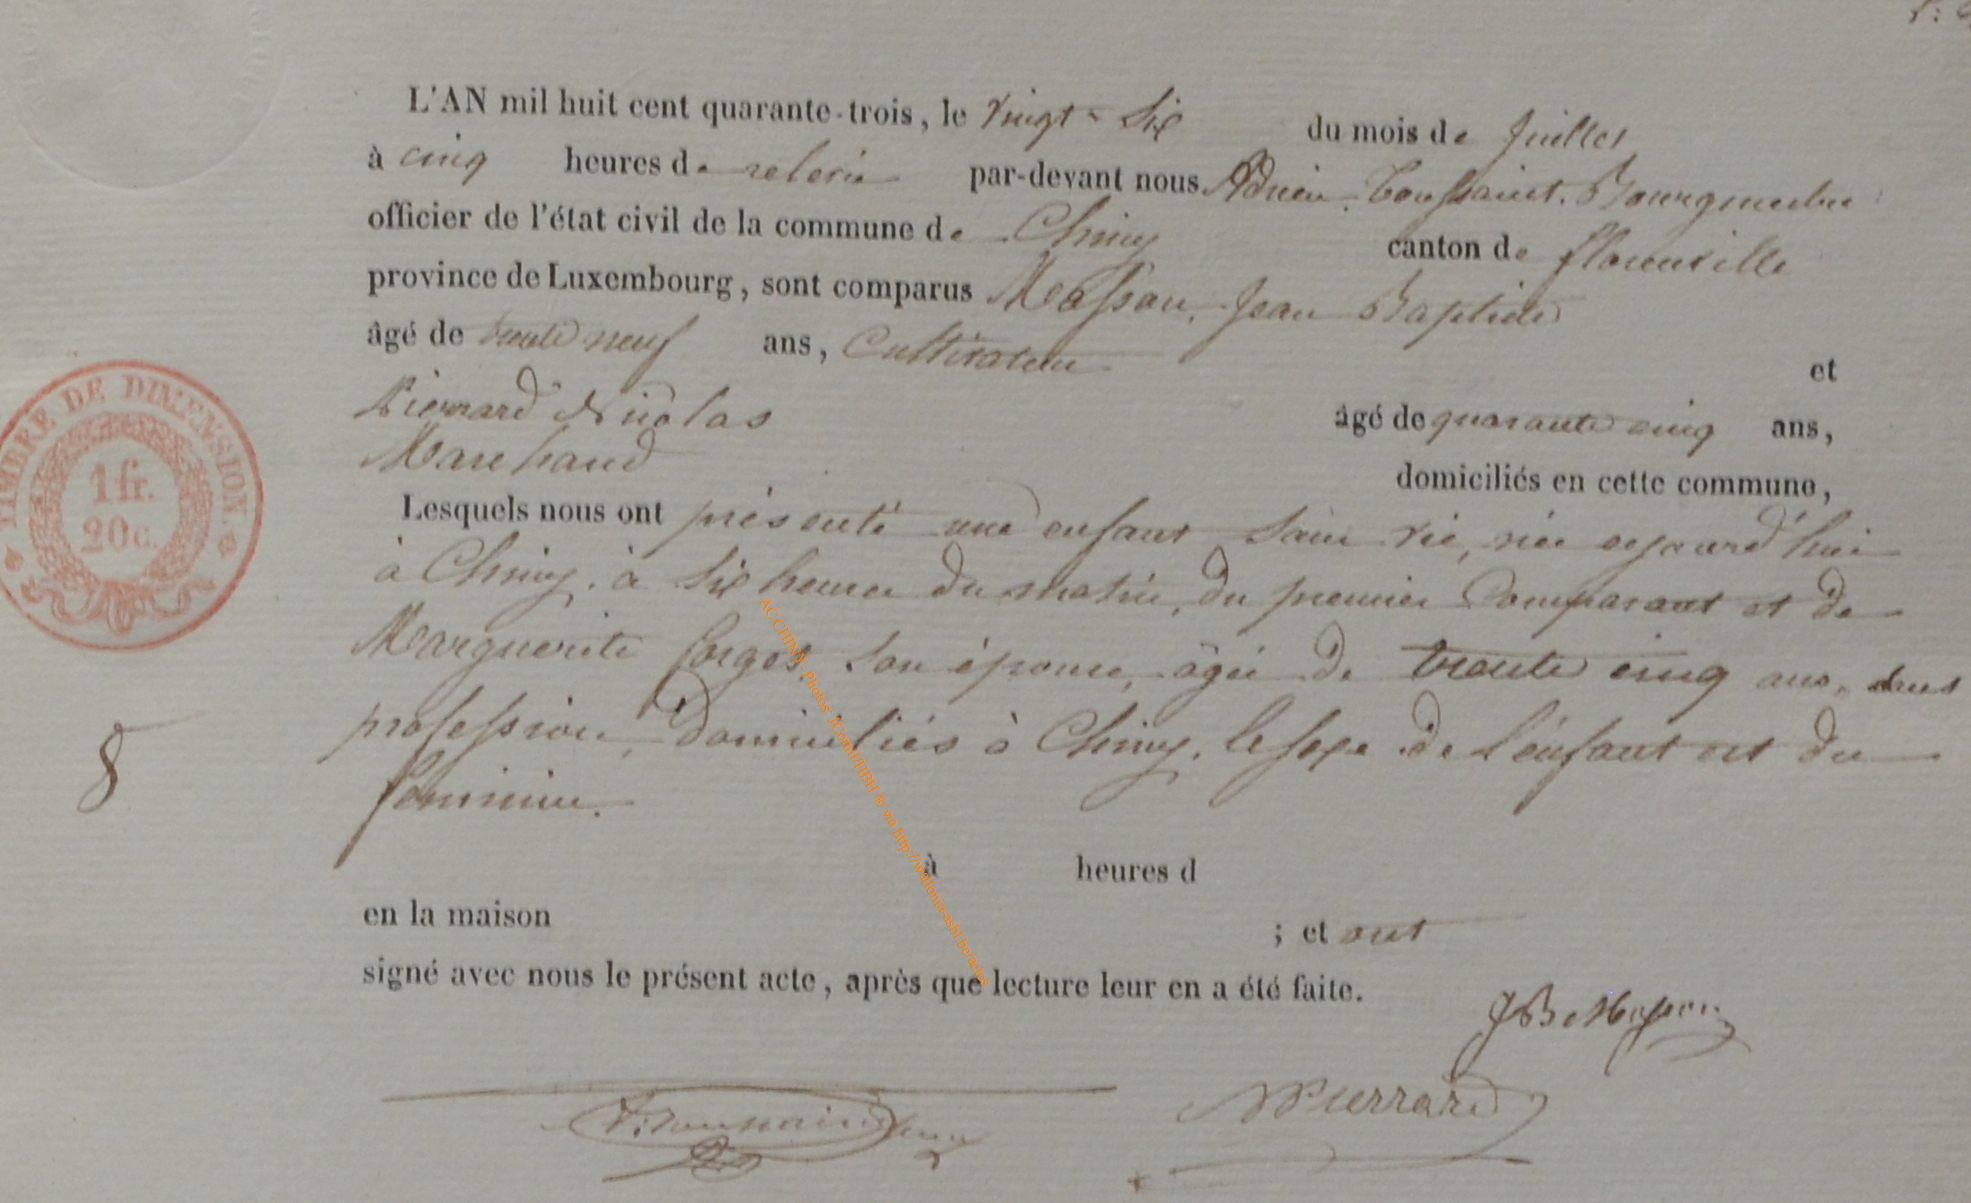 L'AN mil huit cent quarante-trois, le vingt-six du mois de juillet
à cinq heures de relevée par-devant nous Adrien Toussaint, Bourgmestre
officier de l'état civil de la commune de Chiny canton de florenville
province de Luxembourg, sont comparus Masson, Jean Baptiste
âgé de trente neuf ans, Cultivateur et
Pierrard Nicolas âgé de quarante cinq ans,
Marchand domiciliés en cette commune,
Lesquels nous ont présenté une enfant sans vie, née aujourd'hui
à Chiny, à six heures du matin, du premier Comparant et de
Marguerite Forget son épouse, âgée de trente cinq ans, sans
profession, domiciliés à Chiny, le sexe de l'enfant est du
feminin.
à heures d
en la maison ; et ont
signé avec nous le présent acte, après que lecture leur en a été faite.
JB Masson
NPierrard
TIMBRE DE DIMENSION.
1 fr.
20 c.
8